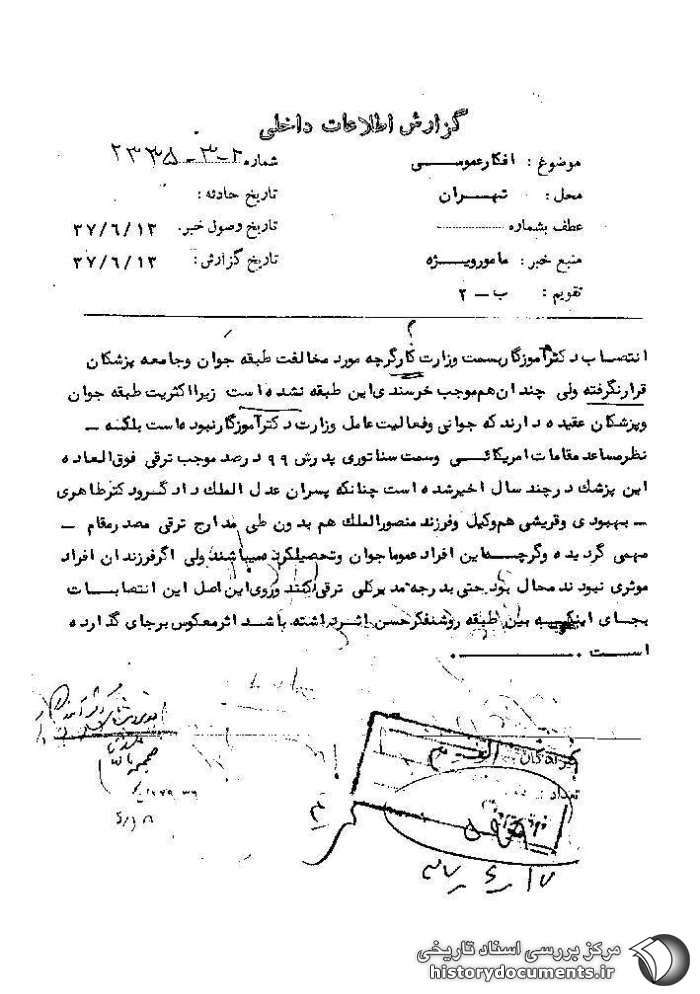 گزارش اطلاعات داخلی
موضوع : افکار عمومــی
شماره ۲-۳-۲۳۳۵
محل : تهــران
تاریخ حادثه :
عطف بشماره
تاریخ وصول خبر. ۳۷/۶/۱۳
منبع خبر : مامور ویــژه
تاریخ گزارش : ۳۷/۶/۱۳
تقویم : ب – ۲
انتصاب دکتر آموزگار بسمت وزارت کار گرچه مورد مخالفت طبقه جوان وجامعه پزشکان
قرار نگرفته ولی چندان هم موجب خرسندی این طبقه نشده است زیرا اکثریت طبقه جوان
وپزشکان عقیده دارند که جوانی وفعالیت عامل وزارت دکتر آموزگار نبوده است بلکه –
نظر مساعد مقامات امریکائی وسمت سناتوری پدرش ۹۹ درصد موجب ترقی فوق العاده
این پزشک در چند سال اخیر شده است چنانکه پسران عدل الملک دادگر و دکتر طاهری
– بهبودی وقریشی هم وکیل وفرزند منصورالملک هم بدون طی مدارج ترقی مصدر مقام –
مهمی گردیده وگرچه این افراد عموما جوان وتحصیلکرده میباشند ولی اگر فرزندان افراد
موثری نبودند محال بود حتی بدرجه مدیر کلی ترقی کنند وروی این اصل این انتصابات
بجای اینکه بین طبقه روشنفکر حسن اثر داشته باشد اثر معکوس برجای گذارده
است .
گیرندگان
تعداد
۳۷/۶/۱۷
مرکز بررسی اسناد تاریخی
historydocuments.ir